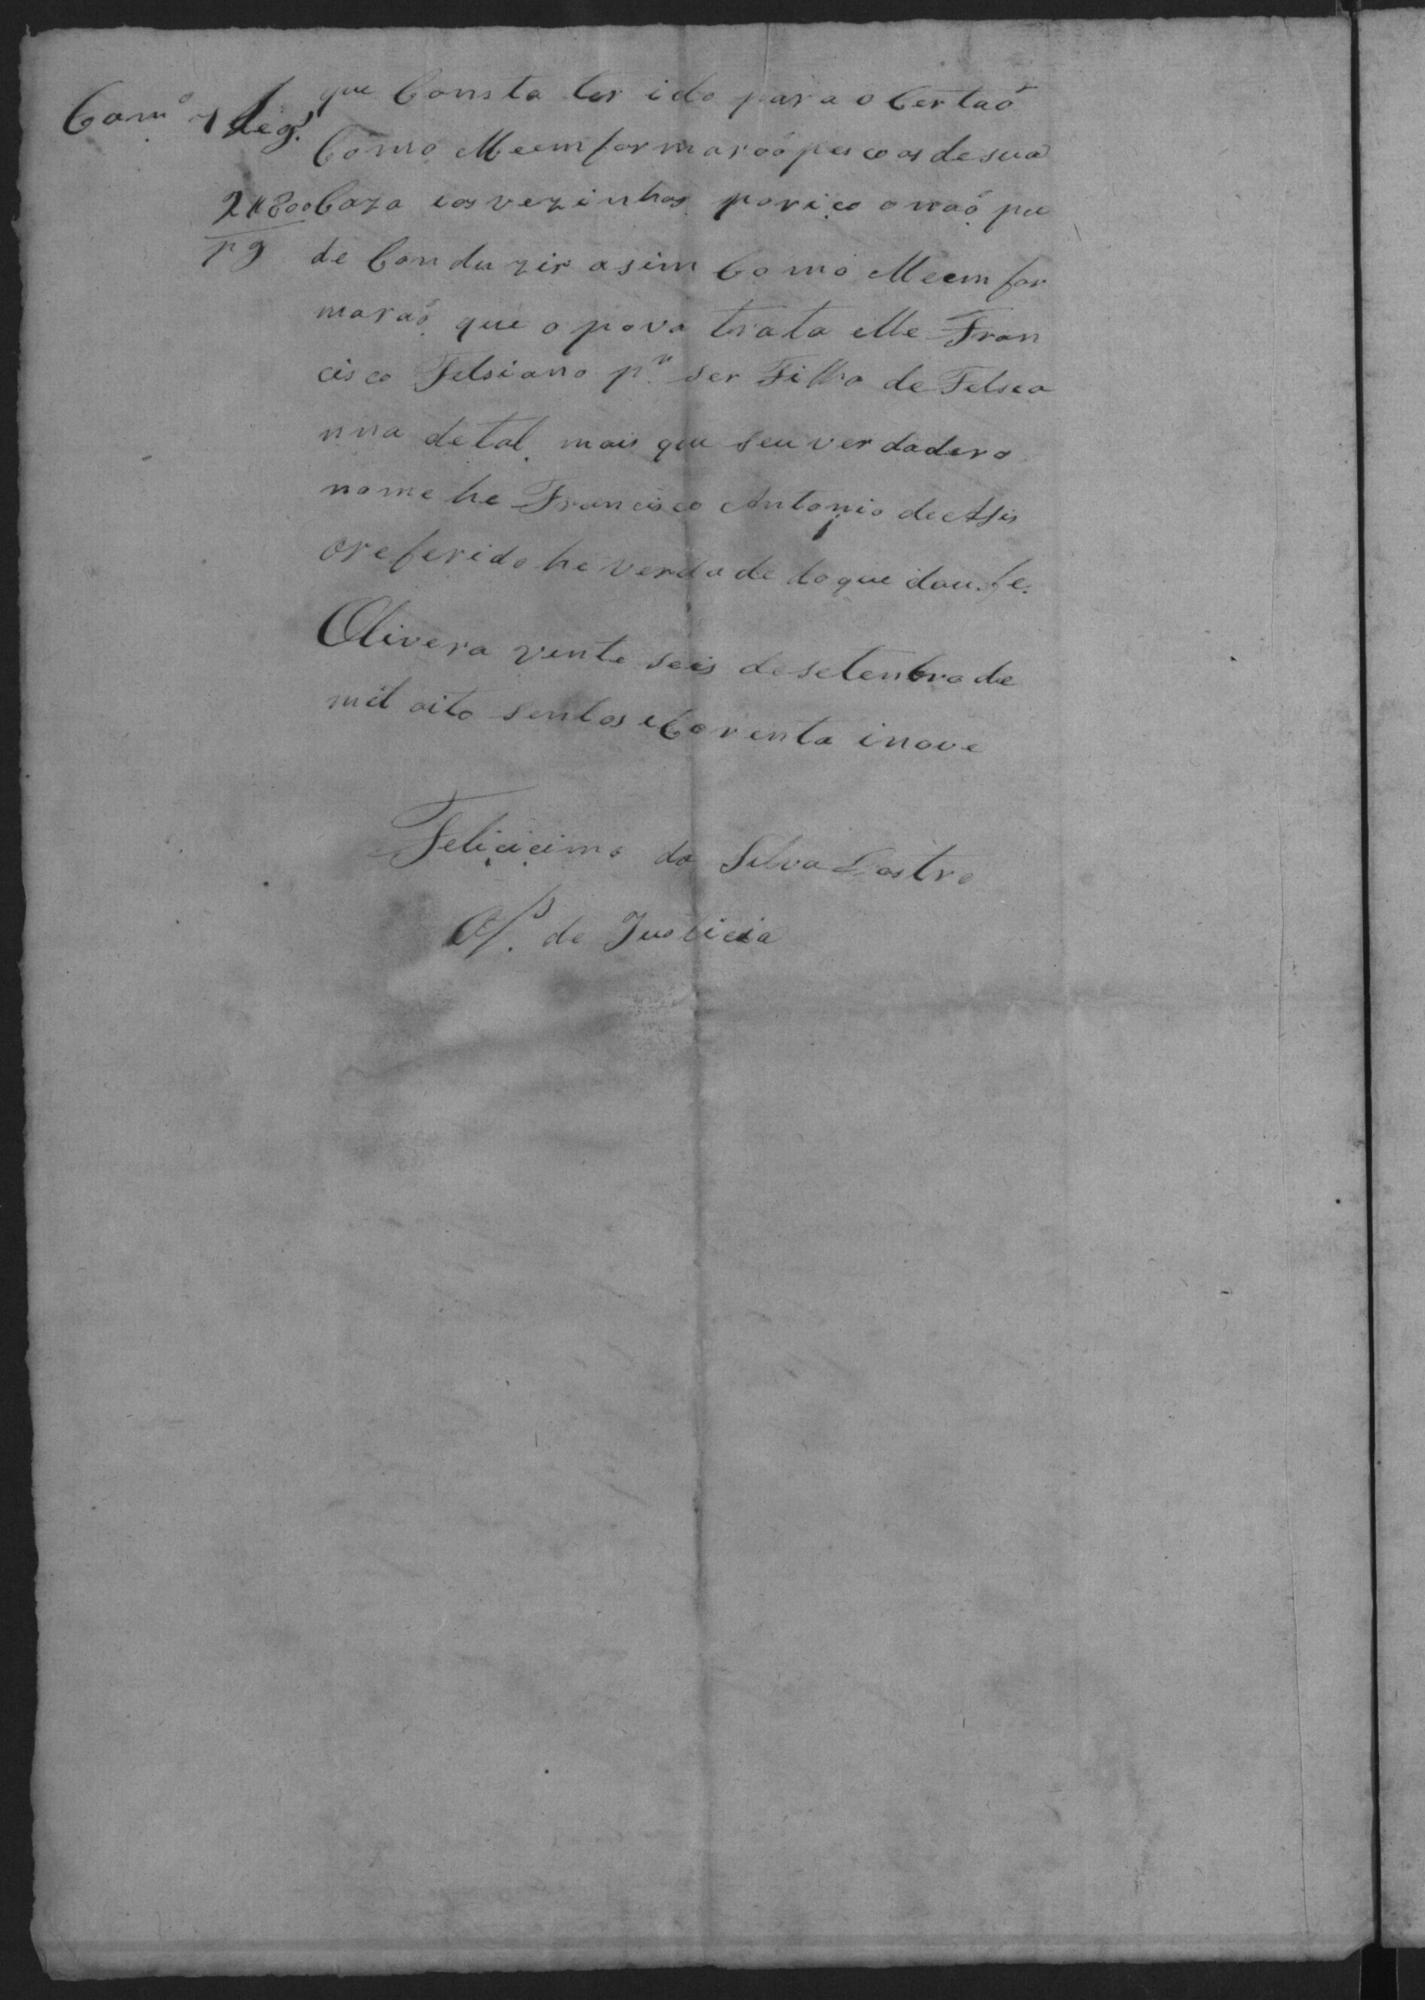 que Consta ter ido para o Certaõ
Cam.º 1 Leg.
Como Meemformaraõ pescoas de sua
2#800
Caza eos vezinhos poriço onaõ pu
pg
de Conduzir asim Como Meemfor
maraõ que o povo trata elle Fran
cisco Felsiano p.r ser Filho de Felsea
nna detal mais que seu verdadero
nome he Francisco Antonio de Asis
oreferido he verdade doque dou fe.
Olivera vinte seis desetenbro de
mil oito sentos eCorenta inove
Felicicimo da Silva Castro
Of. de Justicia